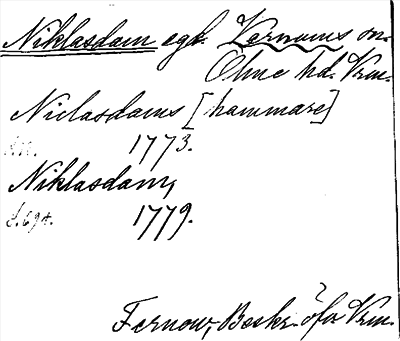 Niklasdam egt. Varnums sn.
Ölme hd. Vrm.
Niclasdams [hammare]
1773.
Niklasdam,
1779.
Fernow, Beskr. öfv. Vrm.